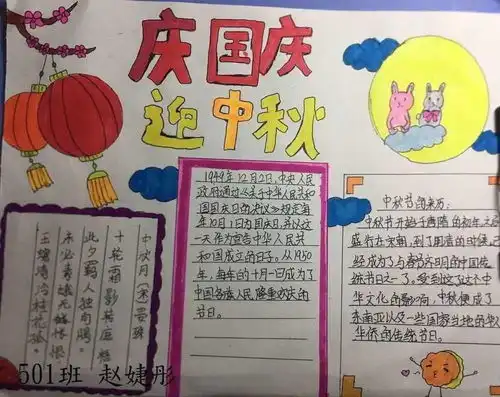 庆国庆
迎中秋
1949年12月2日,中央人民
政府通过《关于中华人民共和
国国庆日的决议》规定每
年10月1日为国庆日,并以这
一天作为宣告中华人民共
和国成立的日子。从1950
年,每年的十月一日成为了
中国各族人民隆重欢庆的
节日。
中秋节的来历:
中秋节开始于唐朝的初年之后
盛行于宋朝,到了明清的时候
经成为了与春节齐明的中国传
统节日之一了。受到这了这个中
华文化的影响,中秋便成了
东南亚以及一些国家当地的华
华侨的传统节日。
中秋月(宋)晏殊
十轮霜影转庭梧
此夕羁人独向隅。
未必素娥无怅恨
玉蟾清冷桂花孤。
501班 赵婕彤